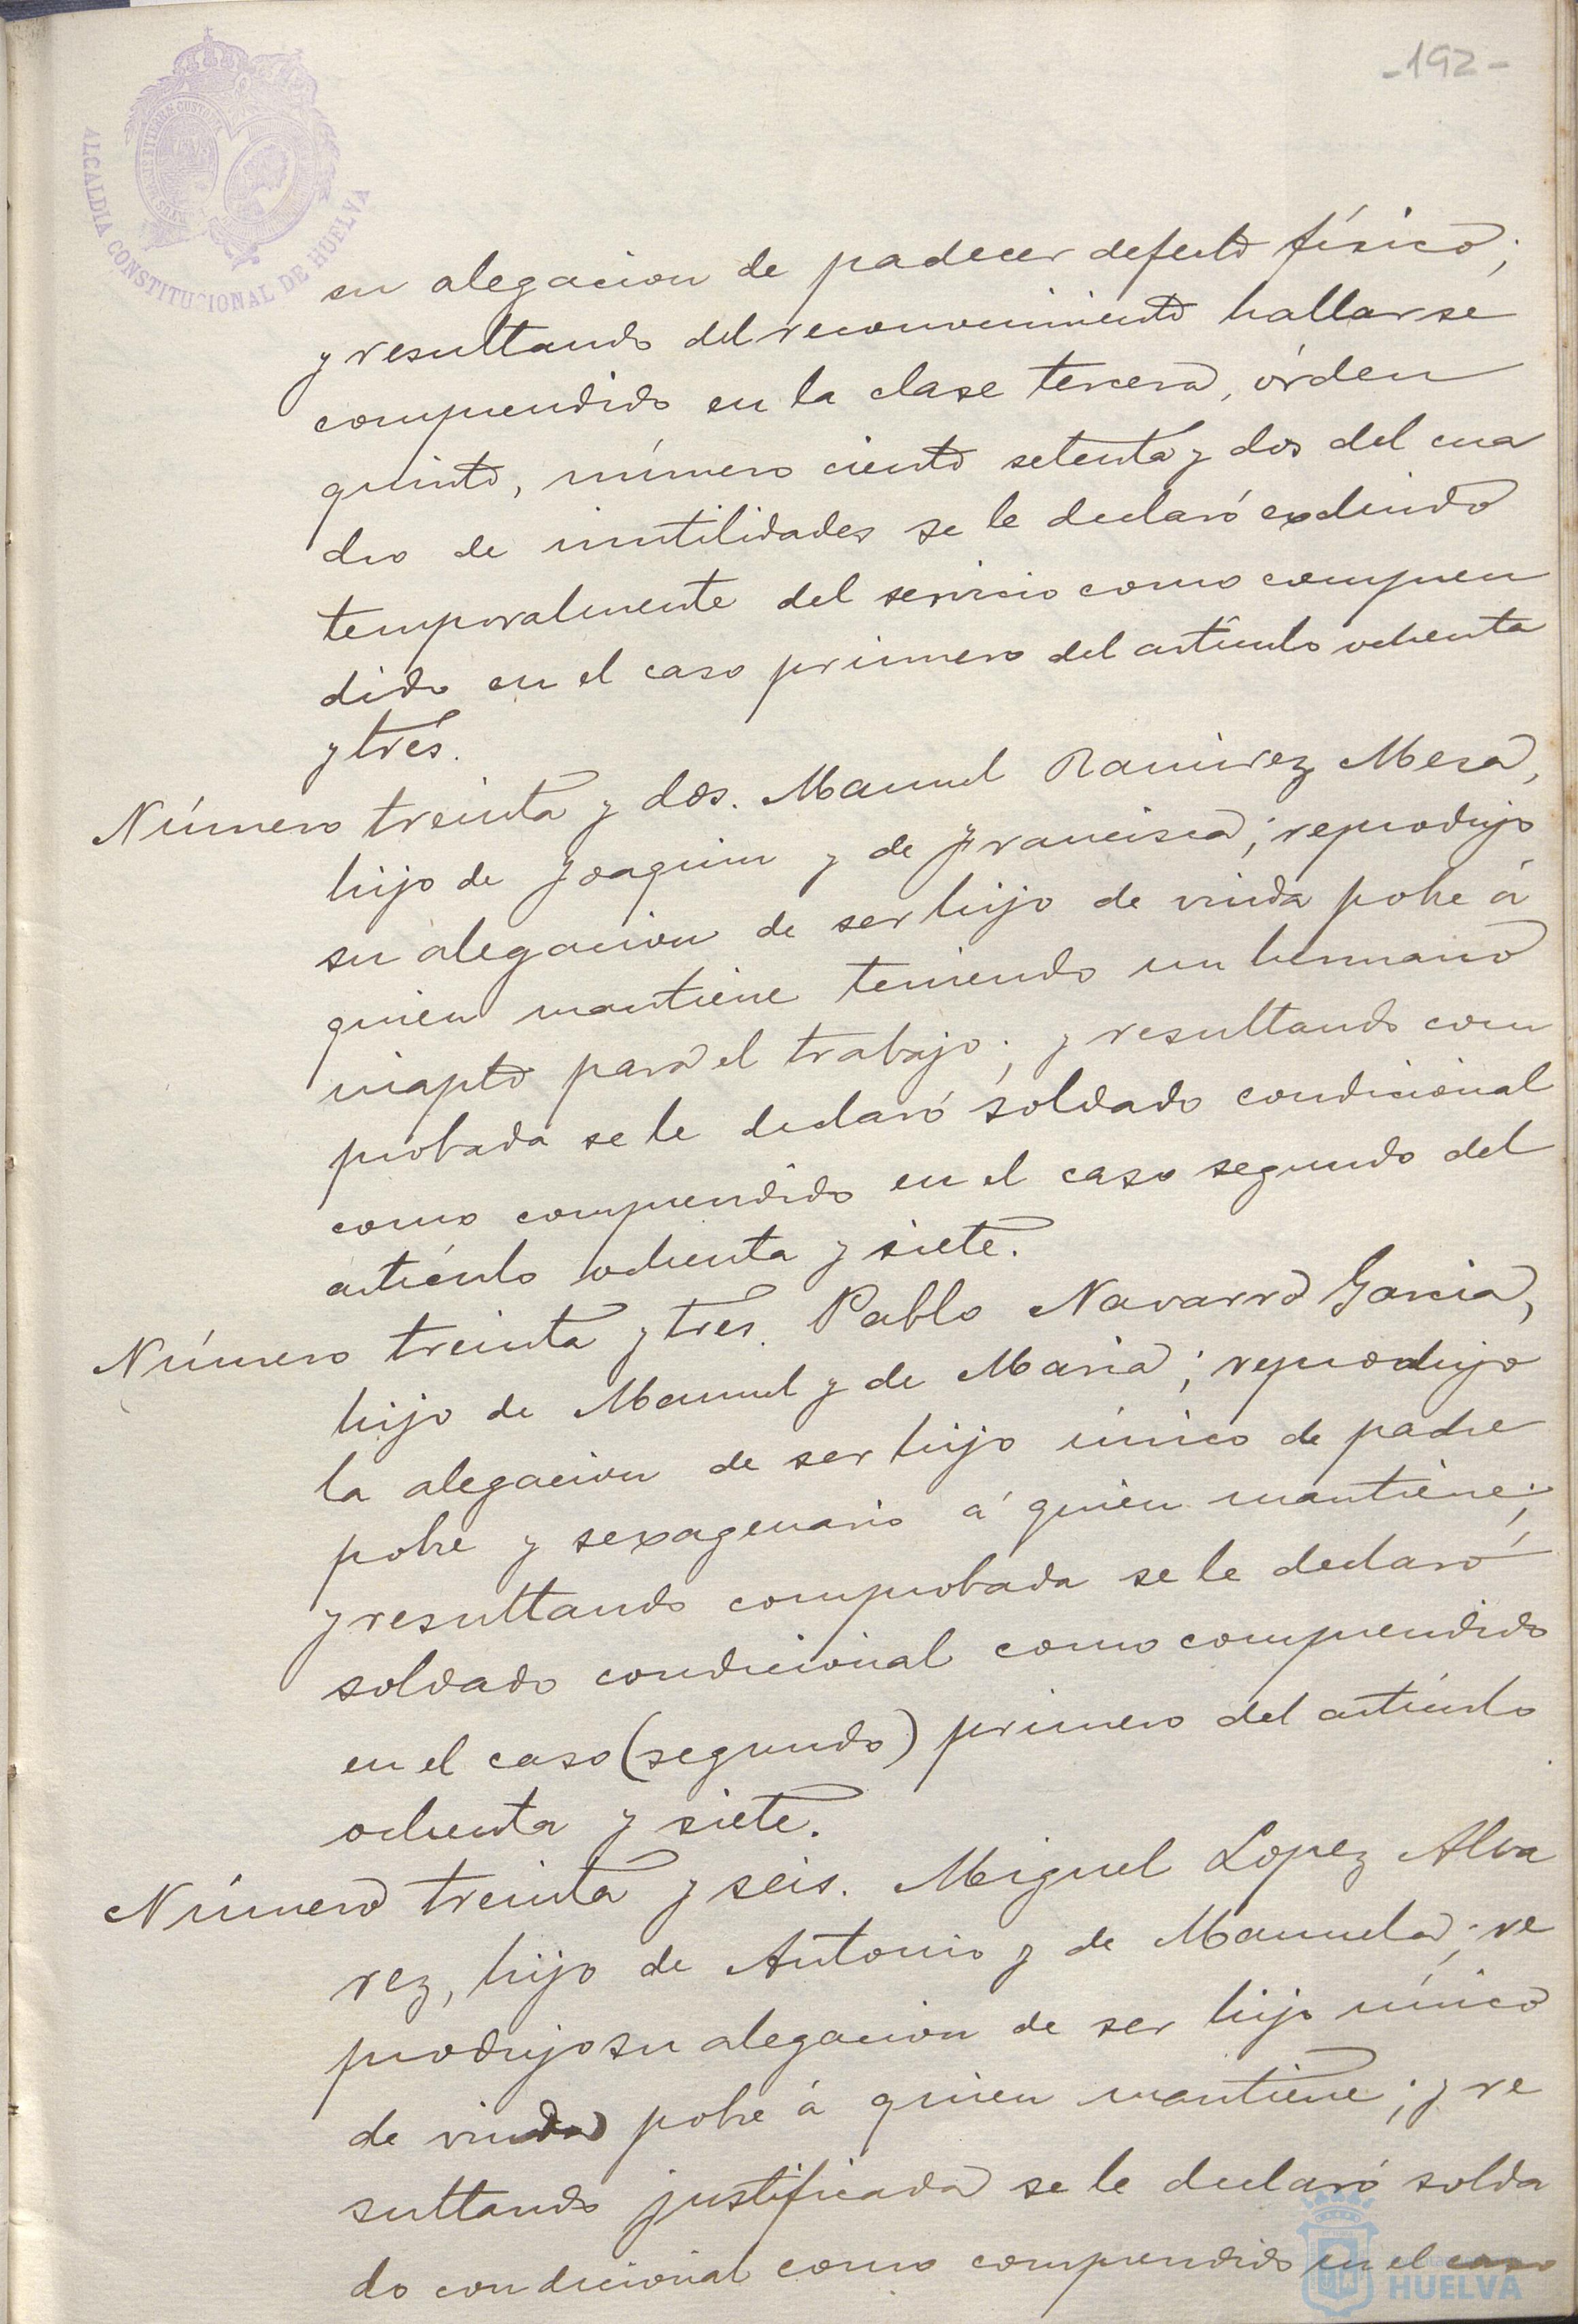 -192-
ALCALDIA CONSTITUCIONAL DE HUELVA
su alegacion de padecer defecto físico;
y resultando del reconocimiento hallarse
comprendido en la clase tercera, órden
quinto, número ciento setenta y dos del cua
dro de inutilidades se le declaró excluido
temporalmente del servicio como compren
dido en el caso primero del artículo ochenta
y tres.
Número treinta y dos. Manuel Ramirez Mesa,
hijo de Joaquin y de Francisca; reprodujo
su alegacion de ser hijo de viuda pobre á
quien mantiene teniendo un hermano
inapto para el trabajo; y resultando com
probada se le declaró soldado condicional
como comprendido en el caso segundo del
artículo ochenta y siete.
Número treinta y tres. Pablo Navarro Garcia,
hijo de Manuel y de Maria; reprodujo
la alegacion de ser hijo único de padre
pobre y sexagenario á quien mantiene;
y resultando comprobada se le declaró
soldado condicional como comprendido
en el caso (segundo) primero del artículo
ochenta y siete.
Número treinta y seis. Miguel Lopez Alva
rez, hijo de Antonio y de Manuela; re
produjo su alegacion de ser hijo único
de viuda pobre á quien mantiene; y re
sultando justificada se le declaró solda
do condicional como comprendido en el caso
HUELVA